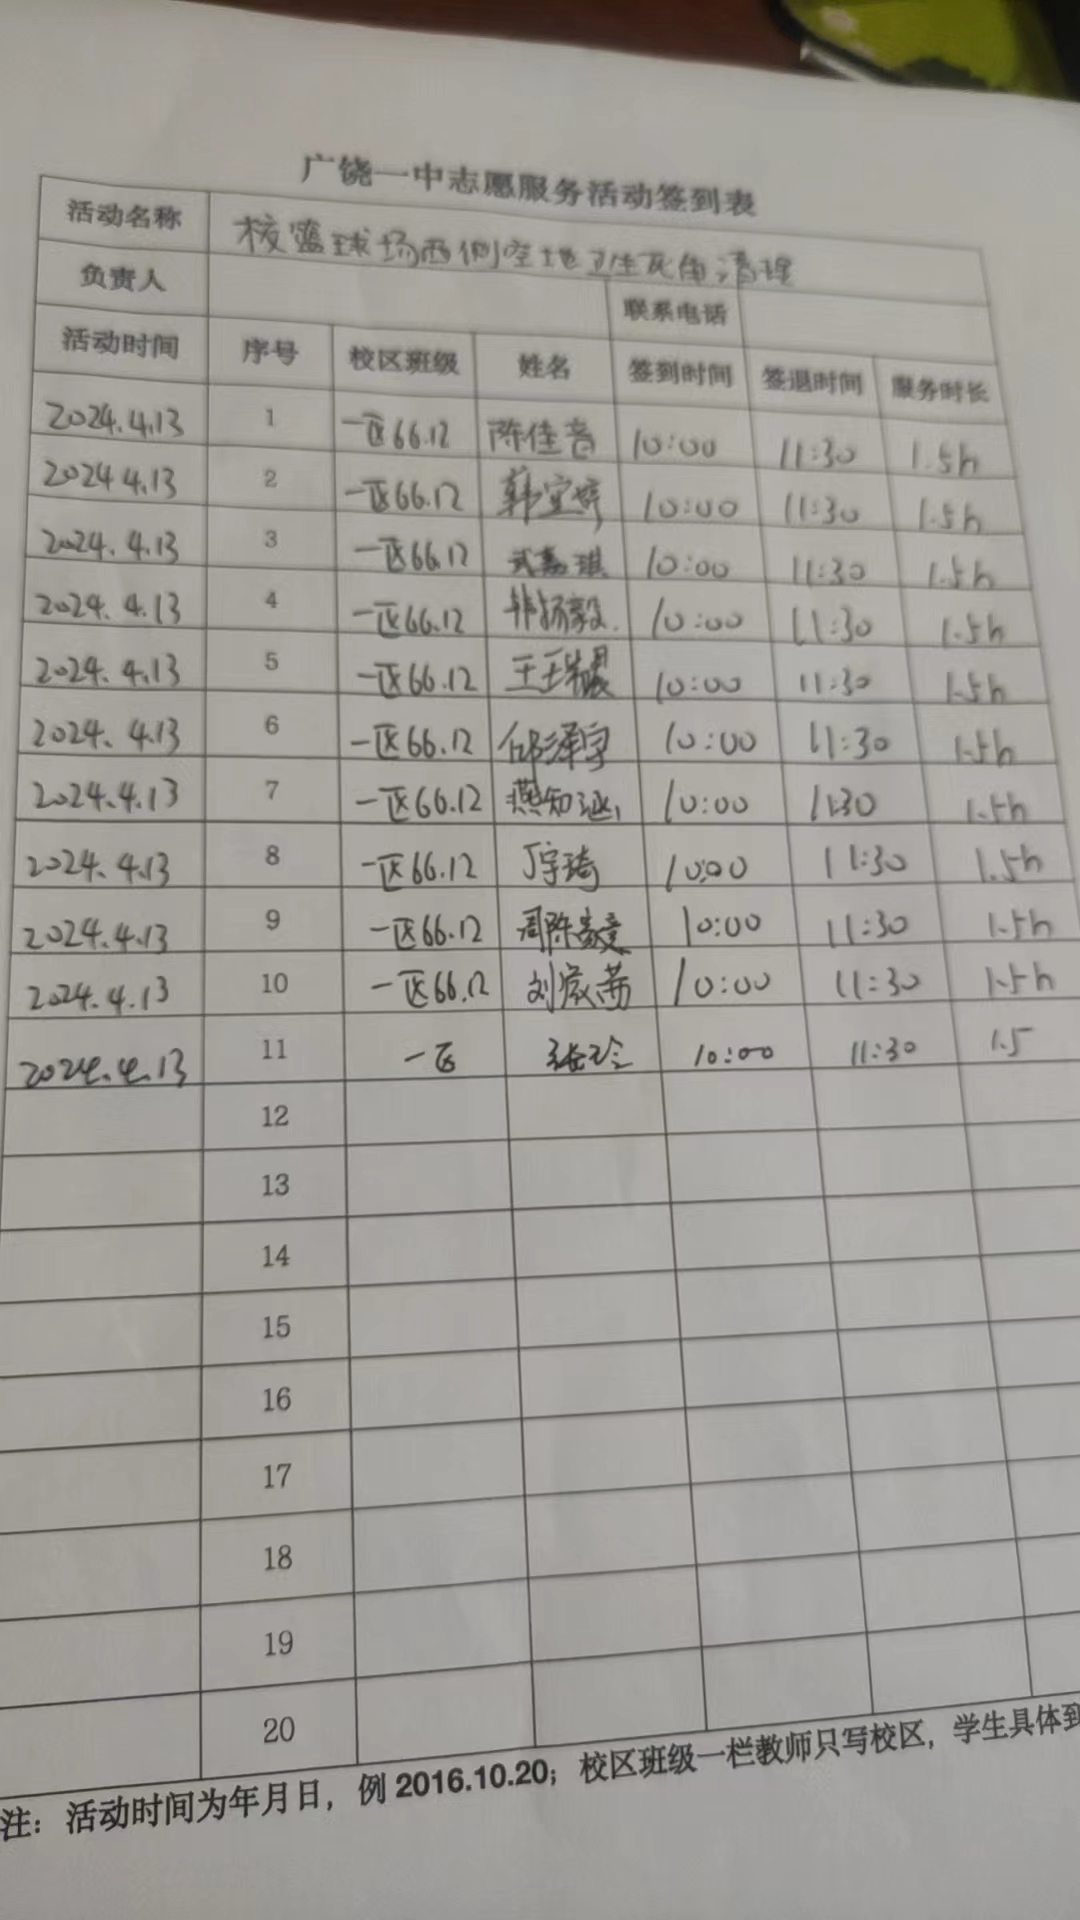 广饶一中志愿服务活动签到表
活动名称 校篮球场西侧空地卫生死角清理
负责人 联系电话
活动时间 序号 校区班级 姓名 签到时间 签退时间 服务时长
2024.4.13 1 一区66.12 陈佳音 10:00 11:30 1.5h
2024 4.13 2 一区66.12 韩宜婷 10:00 11:30 1.5h
2024.4.13 3 一区66.12 武嘉琪 10:00 11:30 1.5h
2024.4.13 4 一区66.12 韩扬毅 10:00 11:30 1.5h
2024.4.13 5 一区66.12 10:00 11:30 1.5h
2024.4.13 6 一区66.12 邱泽宇 10:00 11:30 1.5h
2024.4.13 7 一区66.12 燕知涵 10:00 11:30 1.5h
2024.4.13 8 一区66.12 丁宇琦 10:00 11:30 1.5h
2024.4.13 9 一区66.12 周陈 10:00 11:30 1.5h
2024.4.13 10 一区66.12 刘 10:00 11:30 1.5h
2024.4.13 11 一区 张玲 10:00 11:30 1.5
12
13
14
15
16
17
18
19
20
注：活动时间为年月日，例 2016.10.20；校区班级一栏教师只写校区，学生具体到